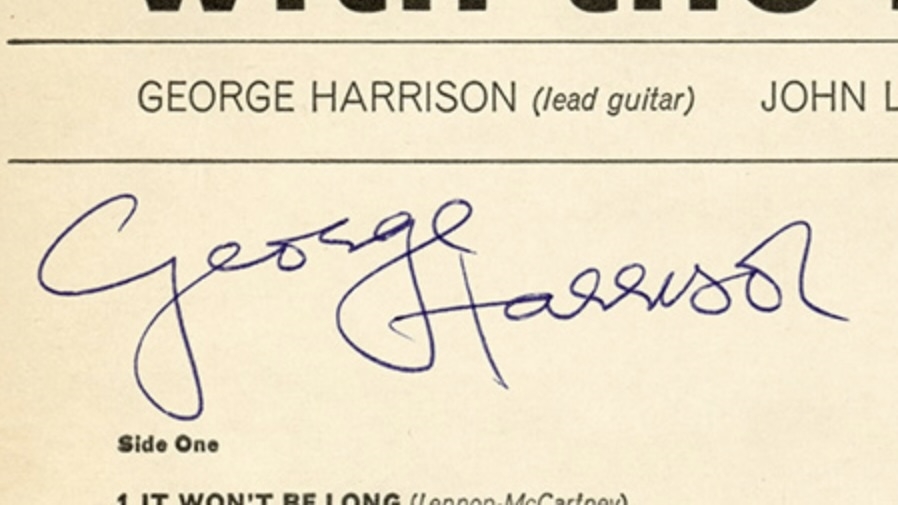 with the
GEORGE HARRISON (lead guitar) JOHN L
George Harrison
Side One
1 IT WON'T BE LONG (Lennon-McCartney)